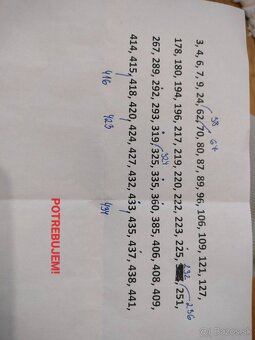 3, 4, 6, 7, 9, 24, 62, 70, 80, 87, 89, 96, 106, 109, 121, 127,
58 67
178, 180, 194, 196, 217, 219, 220, 222, 223, 225, 251,
232 236
267, 289, 292, 293, 319, 325, 335, 360, 385, 406, 408, 409,
324
414, 415, 418, 420, 424, 427, 432, 433, 435, 437, 438, 441,
416 423 434
POTREBUJEM!
bazos.sk